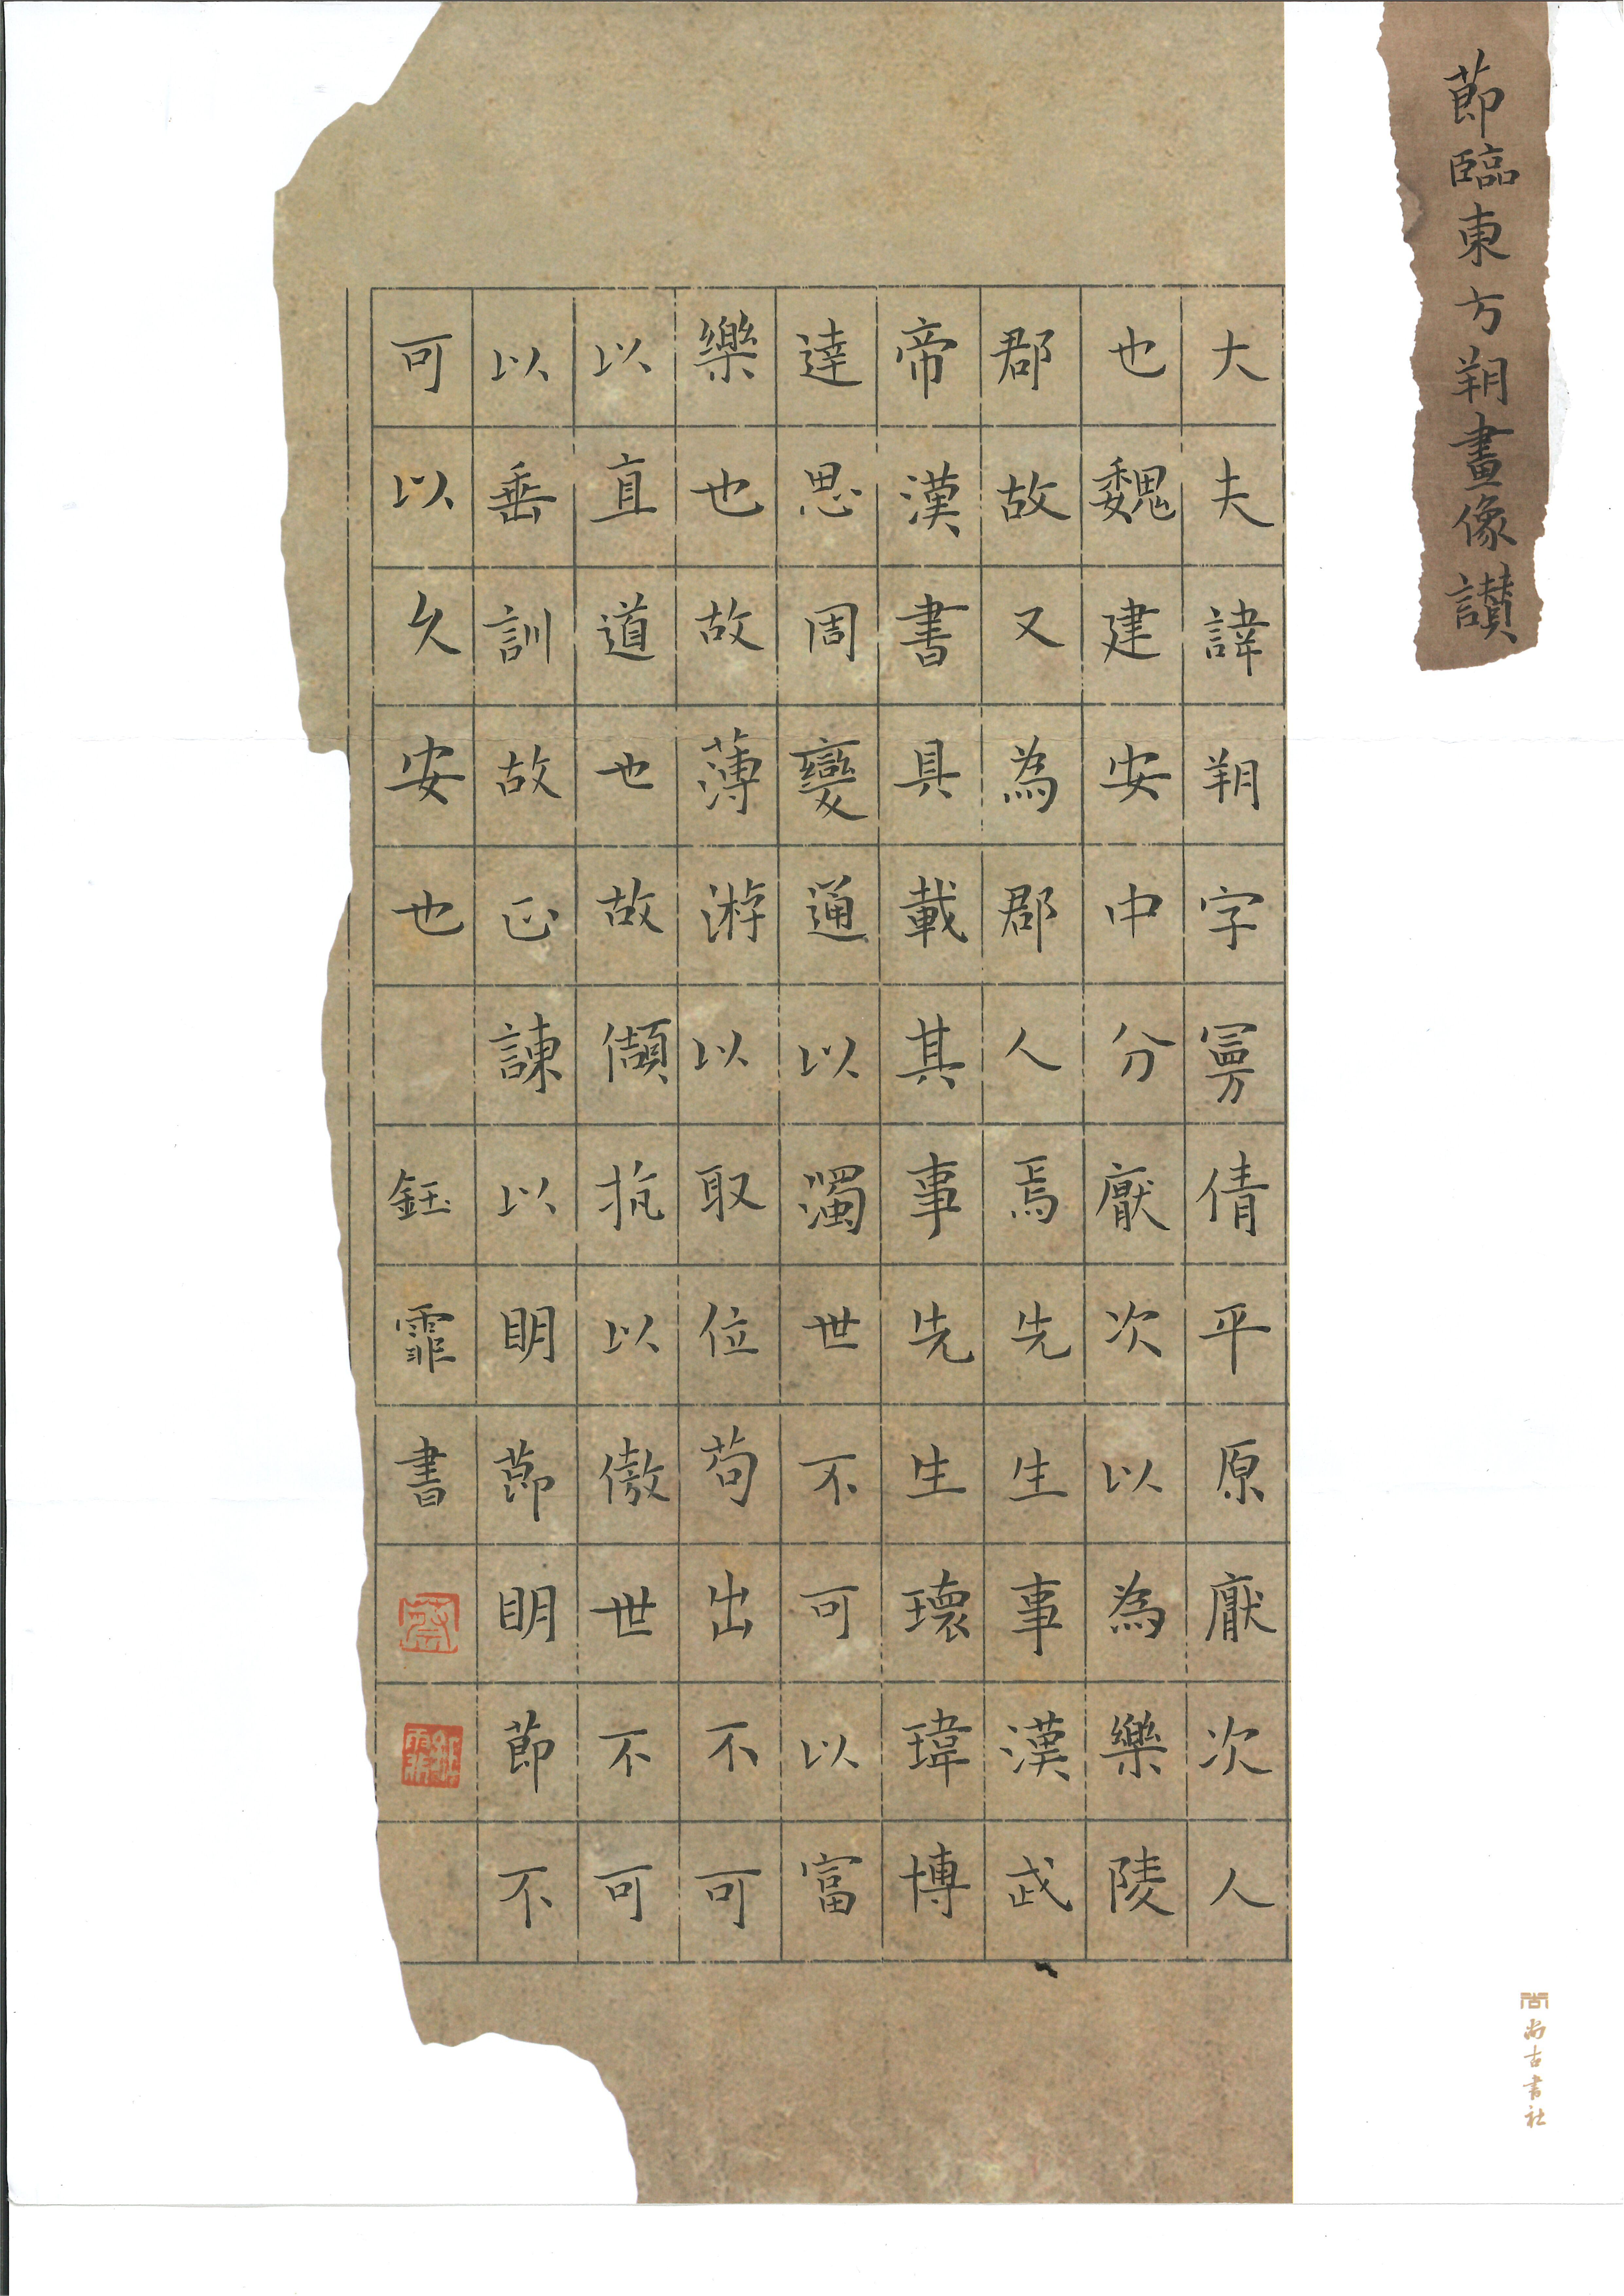 節臨東方朔畫像讃
大夫諱朔字曼倩平原厭次人
也魏建安中分厭次以為樂陵
郡故又為郡人焉先生事漢武
帝漢書具載其事先生瓌瑋博
達思周變通以濁世不可以富
樂也故薄游以取位苟出不可
以直道也故頡抗以傲世不可
以垂訓故正諫以明節明節不
可以久安也
鈺霏書
尚古書社